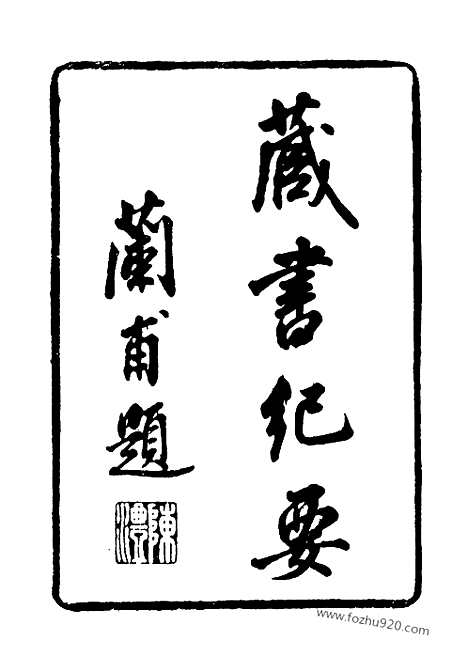 藏書紀要
蘭甫題
陳澧
www.fozhu920.com